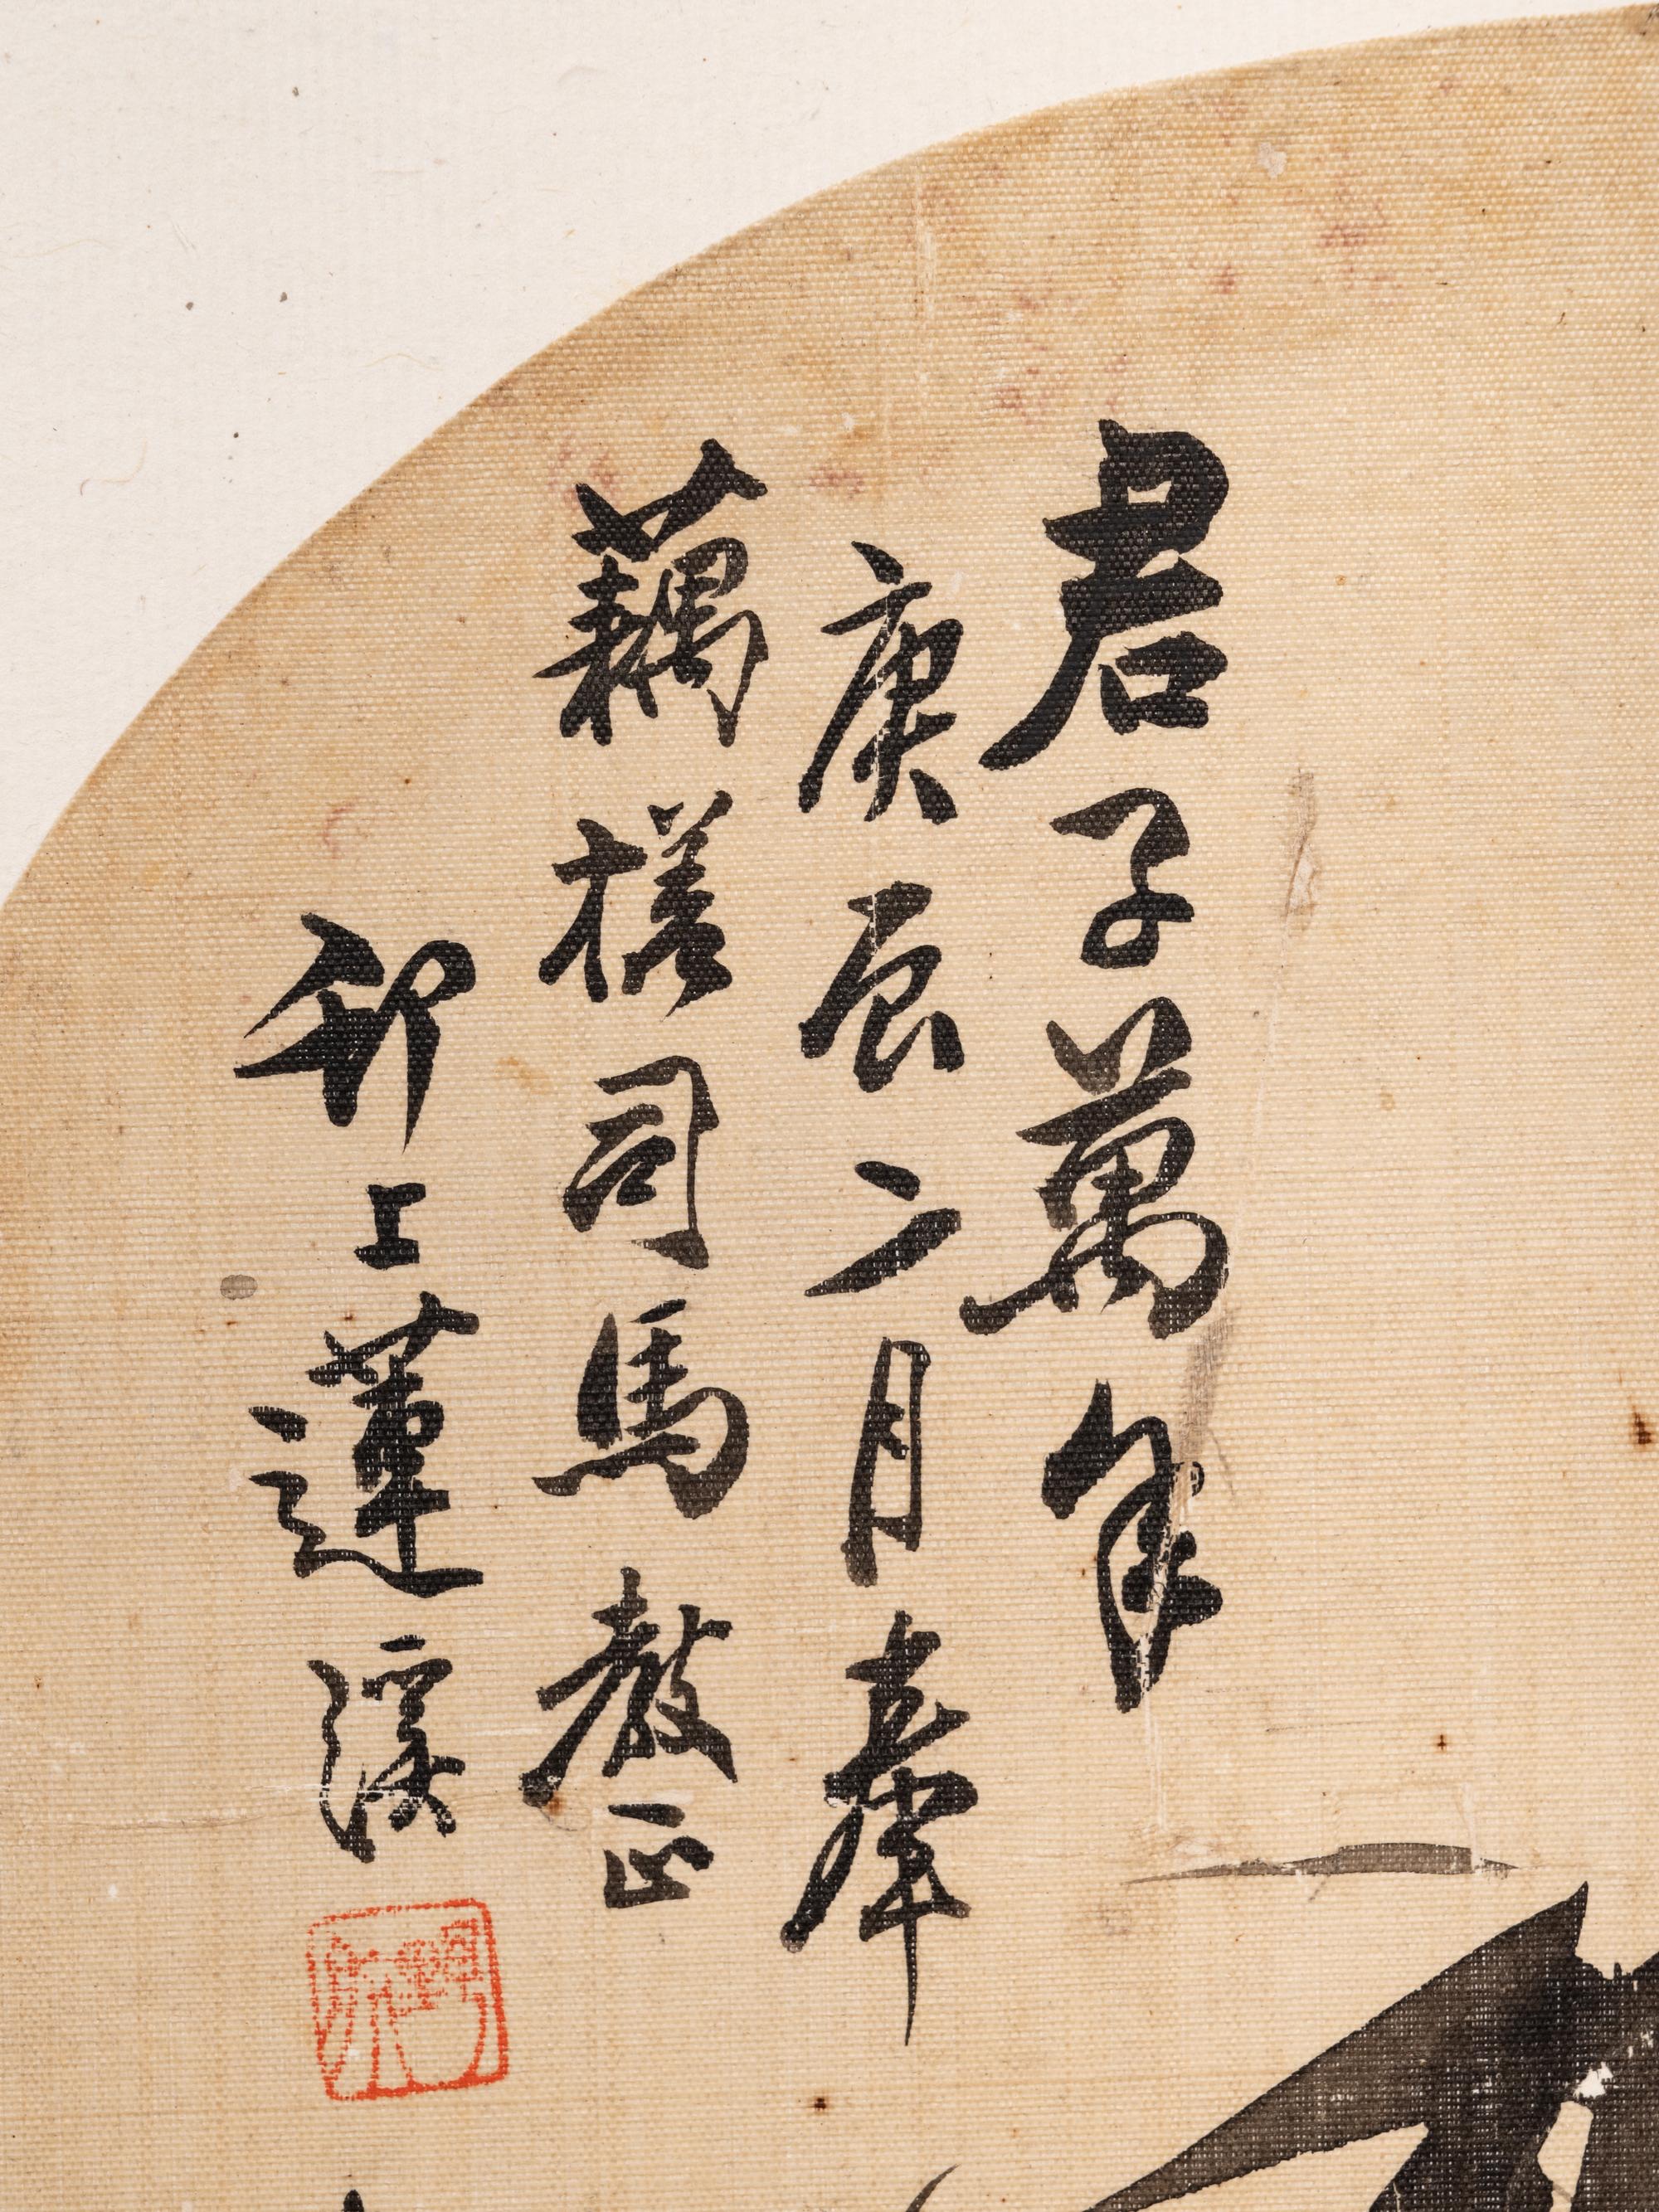 君子萬年
庚辰六月奉
藕槎司馬教正
邗上蓮溪